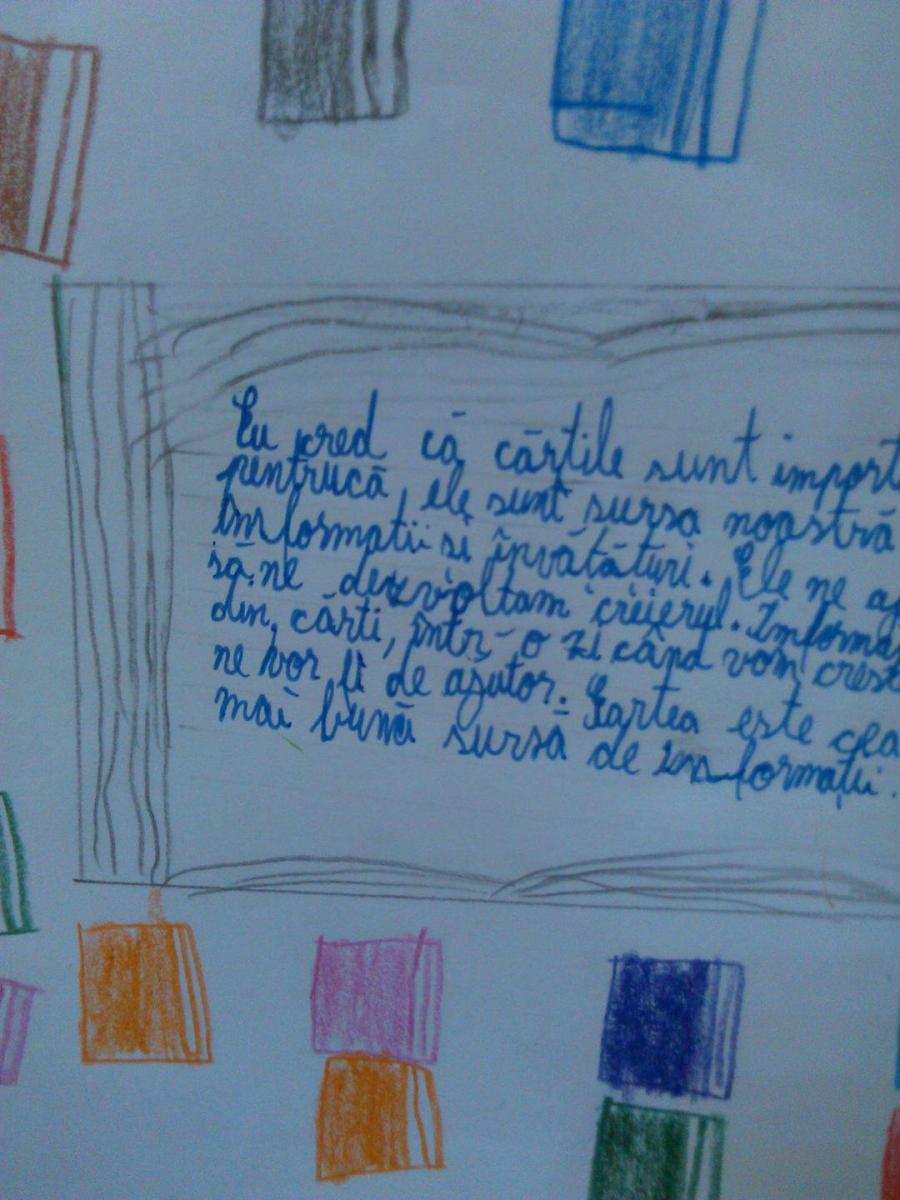 Eu cred că cărtile sunt import
pentrucă, ele sunt sursa noastră
informatii si învătături. Ele ne aj
să ne dezvoltam creierul. Informa
din cărti, într-o zi când vom crest
ne vor fi de ajutor. Cartea este cea
mai bună sursă de informații.